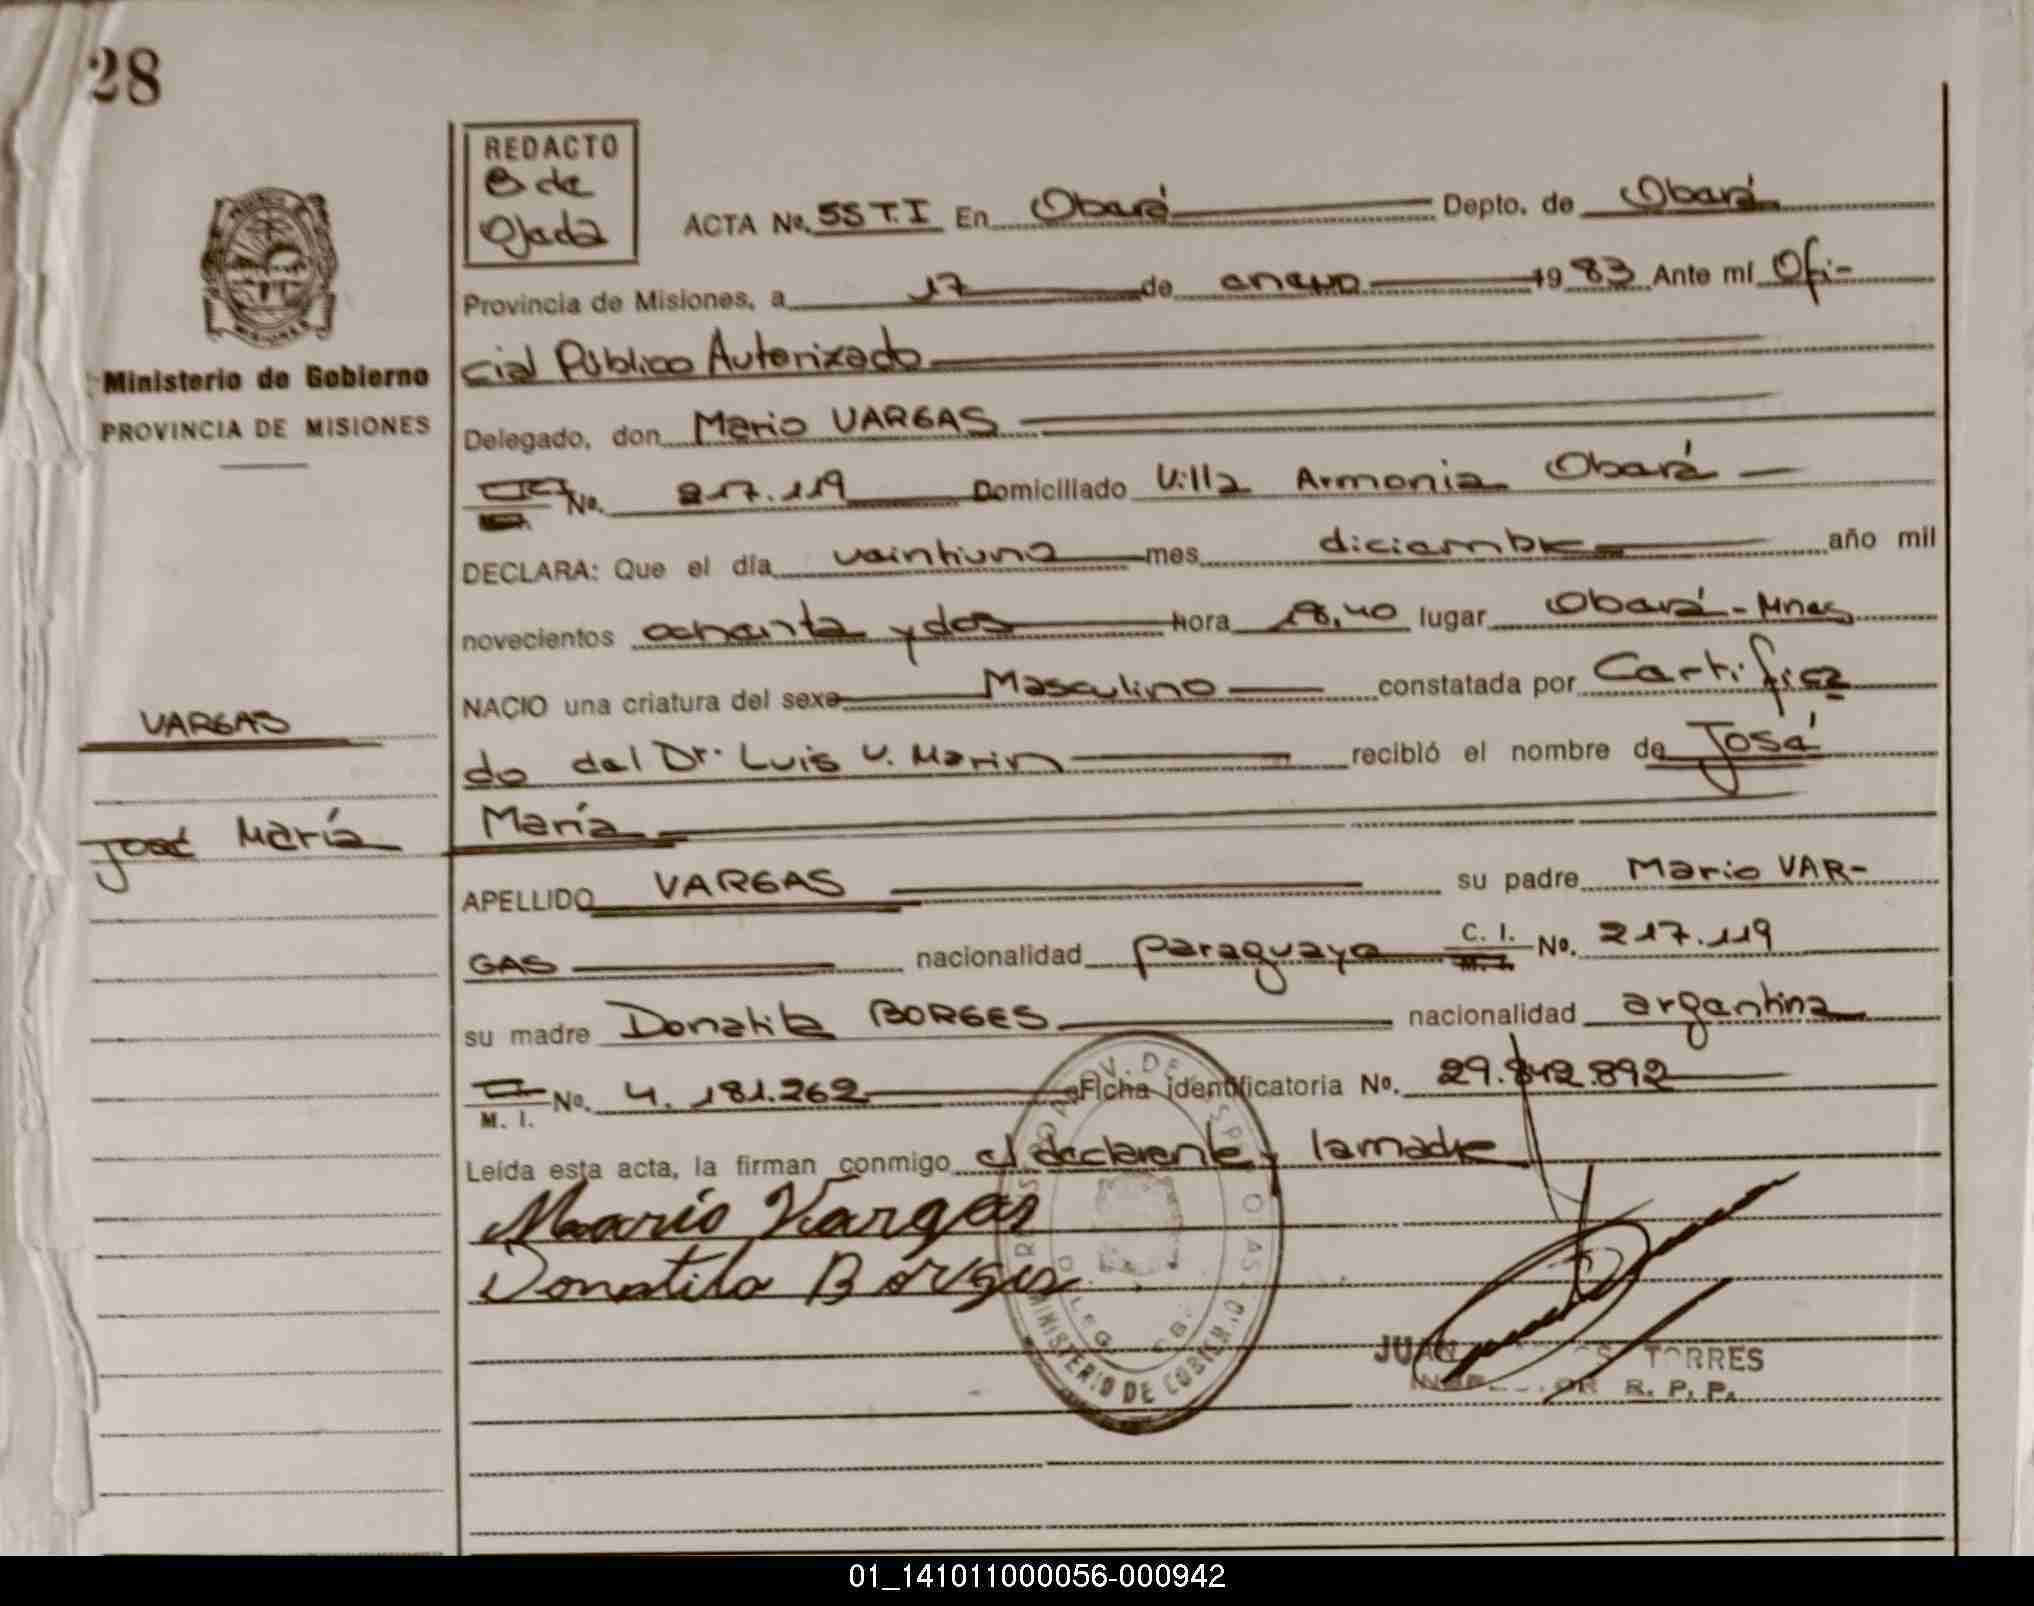 28
REDACTO
B de
Ojeda
ACTA No. 55 T.I En Oberá Depto. de Oberá
Provincia de Misiones, a 17 de enero 1983 Ante mí Ofi-
cial Público Autorizado
Ministerio de Gobierno
PROVINCIA DE MISIONES
Delegado, don Mario VARGAS
No. 217.119 Domiciliado Villa Armonia Oberá
DECLARA: Que el día veintiuno mes diciembre año mil
novecientos ochenta y dos hora 18,40 lugar Oberá - Mnes
NACIO una criatura del sexo Masculino constatada por Certifica
VARGAS
do del Dr. Luis V. Marin recibió el nombre de José
José María
María
APELLIDO VARGAS su padre Mario VAR-
GAS nacionalidad paraguaya C. I. No. 217.119
M. I.
su madre Donatila BORGES nacionalidad argentina
M. I. No. 4.181.262 Ficha identificatoria No. 29.842.892
Leída esta acta, la firman conmigo el declarente y la madre
Mario Vargas
Donatila Borges
MINISTERIO DE GOBIERNO
JUAN TORRES
INSPECTOR R. P. P.
01_141011000056-000942